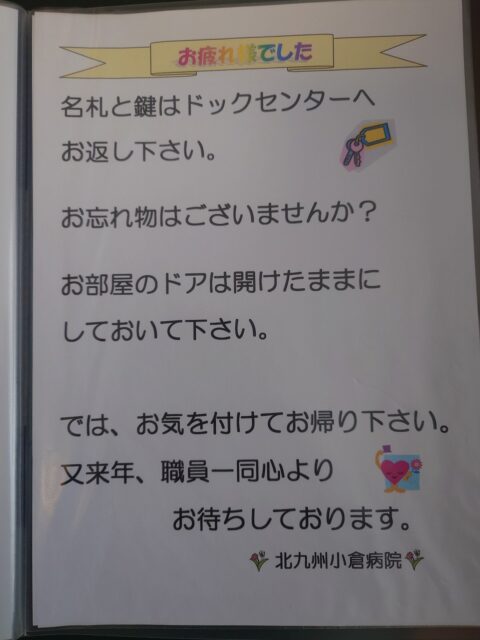 お疲れ様でした
名札と鍵はドックセンターへ
お返し下さい。
お忘れ物はございませんか？
お部屋のドアは開けたままに
しておいて下さい。
では、お気を付けてお帰り下さい。
又来年、職員一同心より
お待ちしております。
北九州小倉病院